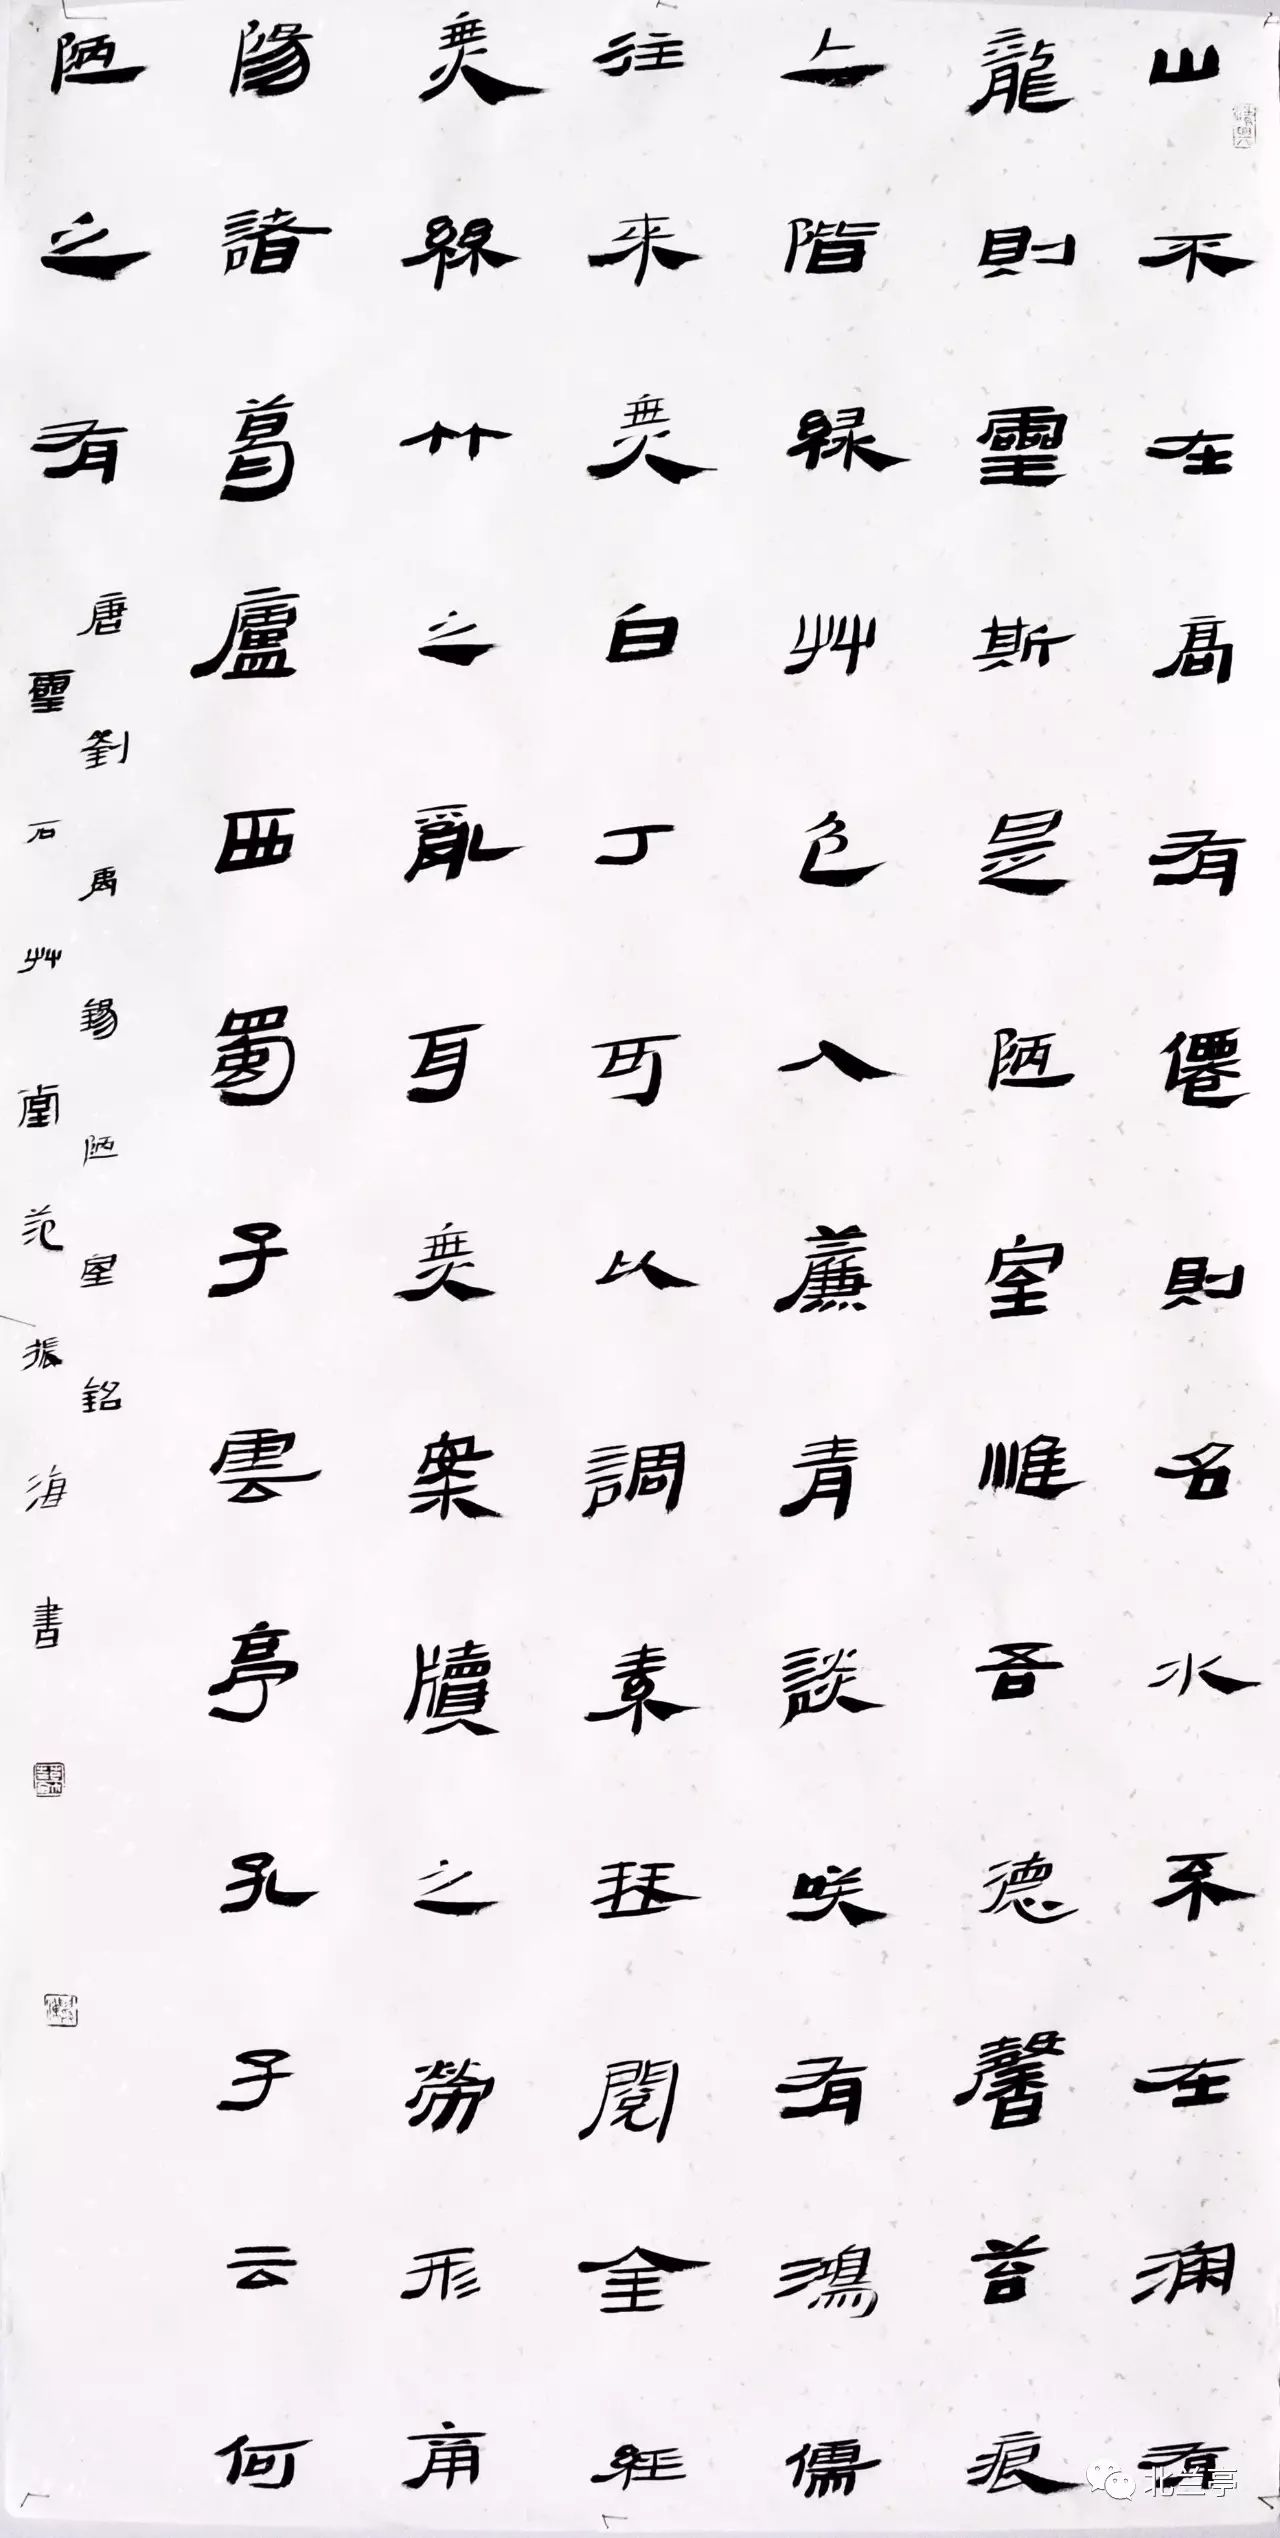 山不在高有僊則名水不在淵有
龍則靈斯是陋室惟吾德馨苔痕
上階緑艸色入簾青談咲有鴻儒
往來無白丁可以調素琴閱金經
無絲竹之亂耳無案牘之勞形南
陽諸葛廬西蜀子雲亭孔子云何
陋之有
唐劉禹錫陋室銘
靈石艸堂范振海書
北兰亭